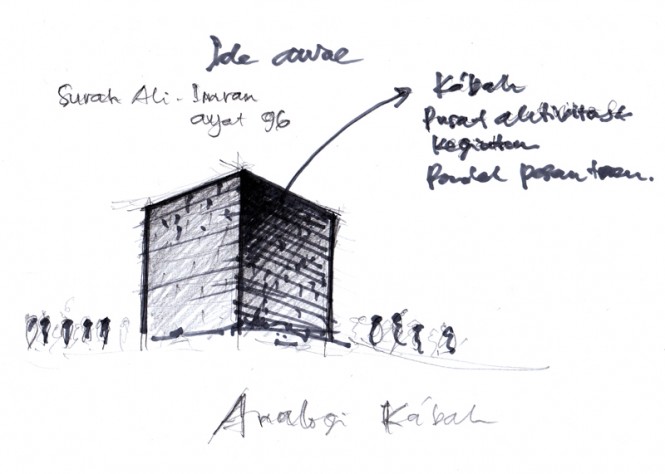 Ide awal
Surah Ali-Imran
ayat 96
Ká'bah
Pusat aktivitas &
kegiatan
Pondok pesantren.
Analogi Ká'bah